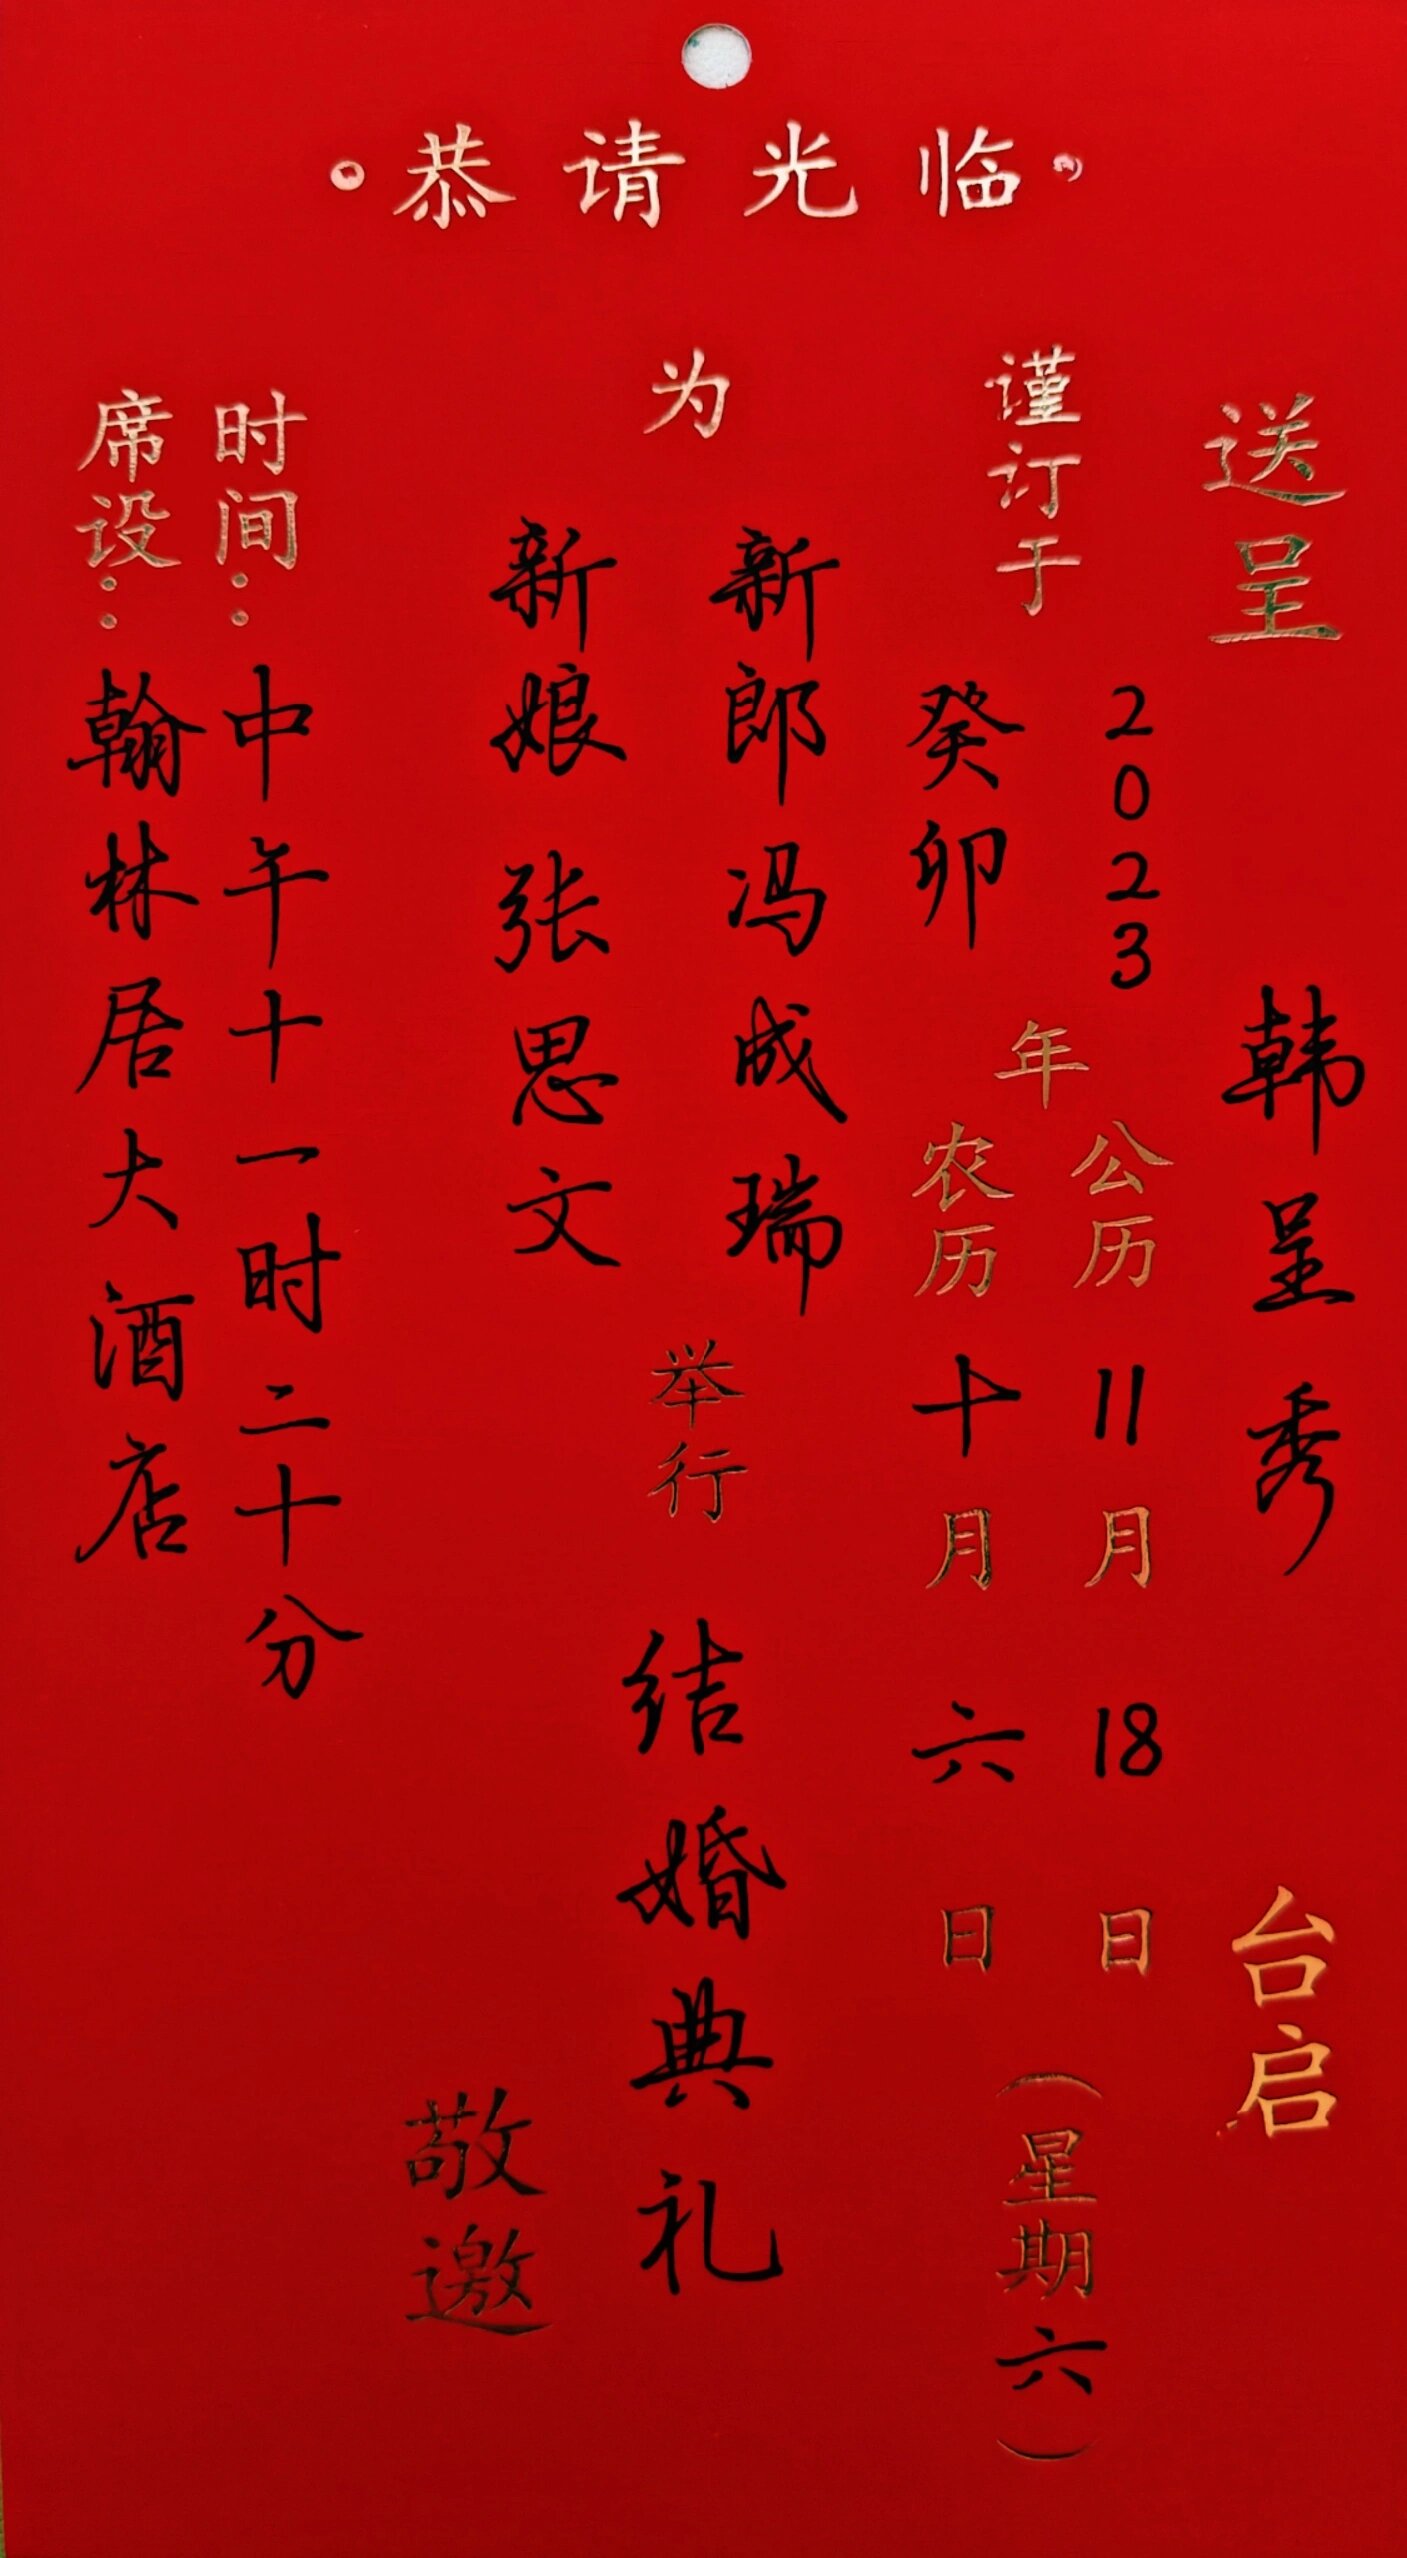 恭请光临
送呈 韩呈秀 台启
谨订于
2023
癸卯
年
公历 11月18日
农历 十月六日
(星期六)
为
新郎冯成瑞
新娘张思文
举行
结婚典礼
敬邀
时间:中午十一时二十分
席设:翰林居大酒店